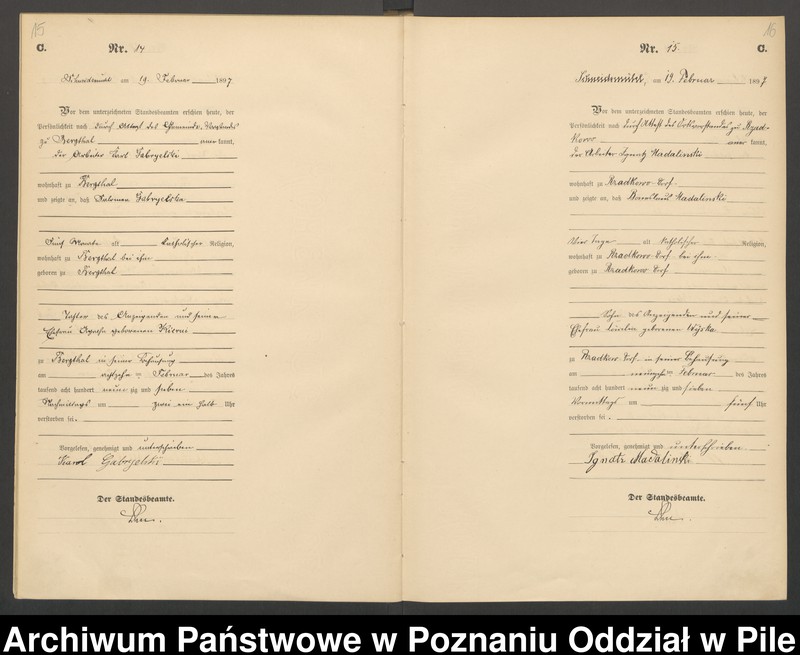 15
C.
Nr. 14
Schneidemühl am 19. Februar 1897
Vor dem unterzeichneten Standesbeamten erschien heute, der
Persönlichkeit nach durch Attest des Gemeinde-Vorstandes
zu Bergthal anerkannt,
der Arbeiter Karl Gabryelski
wohnhaft zu Bergthal
und zeigte an, daß Salomea Gabryelska
Fünf Monate alt katholischer Religion,
wohnhaft zu Bergthal bei ihm
geboren zu Bergthal
Tochter des Anzeigenden und seiner
Ehefrau Agathe geborenen
zu Bergthal in seiner Behausung
am achtzehnten Februar des Jahres
tausend acht hundert neunzig und sieben
Nachmittags um zwei ein halb Uhr
verstorben sei.
Vorgelesen, genehmigt und unterschrieben
Karol Gabryelski
Der Standesbeamte.
16
Nr. 15.
C.
Schneidemühl, am 19. Februar 1897
Vor dem unterzeichneten Standesbeamten erschien heute, der
Persönlichkeit nach durch Attest des Ortsvorstandes zu Rzad-
kowo anerkannt,
der Arbeiter Ignatz Madalinski
wohnhaft zu Rzadkowo Dorf
und zeigte an, daß Madalinski
Vier Tage alt katholischer Religion,
wohnhaft zu Rzadkowo Dorf bei ihm
geboren zu Rzadkowo Dorf
Sohn des Anzeigenden und seiner
Ehefrau geborenen
zu Rzadkowo Dorf in seiner Behausung
am neunzehnten Februar des Jahres
tausend acht hundert neunzig und sieben
Vormittags um fünf Uhr
verstorben sei.
Vorgelesen, genehmigt und unterschrieben.
Ignatz Madalinski
Der Standesbeamte.
Archiwum Państwowe w Poznaniu Oddział w Pile